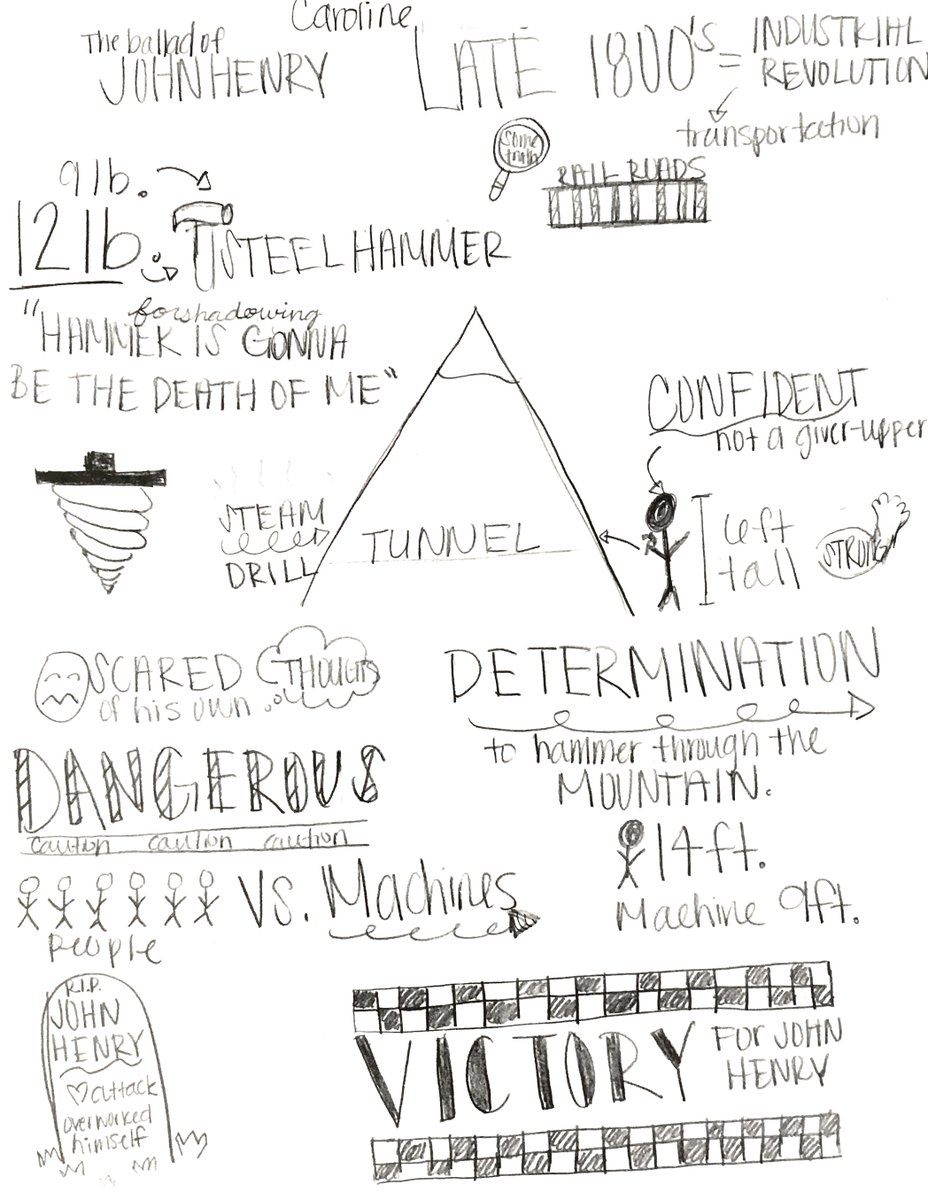 Caroline
The ballad of
JOHN HENRY
LATE 1800's = INDUSTRIAL
REVOLUTION
transportation
some
truth
RAIL ROADS
9lb.
12lb. STEEL HAMMER
forshadowing
"HAMMER IS GONNA
BE THE DEATH OF ME"
CONFIDENT
not a giver-upper
STEAM
DRILL
TUNNEL
6ft
tall
STRONG
SCARED
of his own
THOUGHTS
DETERMINATION
to hammer through the
MOUNTAIN.
DANGEROUS
caution caution caution
14ft.
Machine 9ft.
VS. Machines
People
R.I.P.
JOHN
HENRY
attack
overworked
himself
VICTORY
FOR JOHN
HENRY